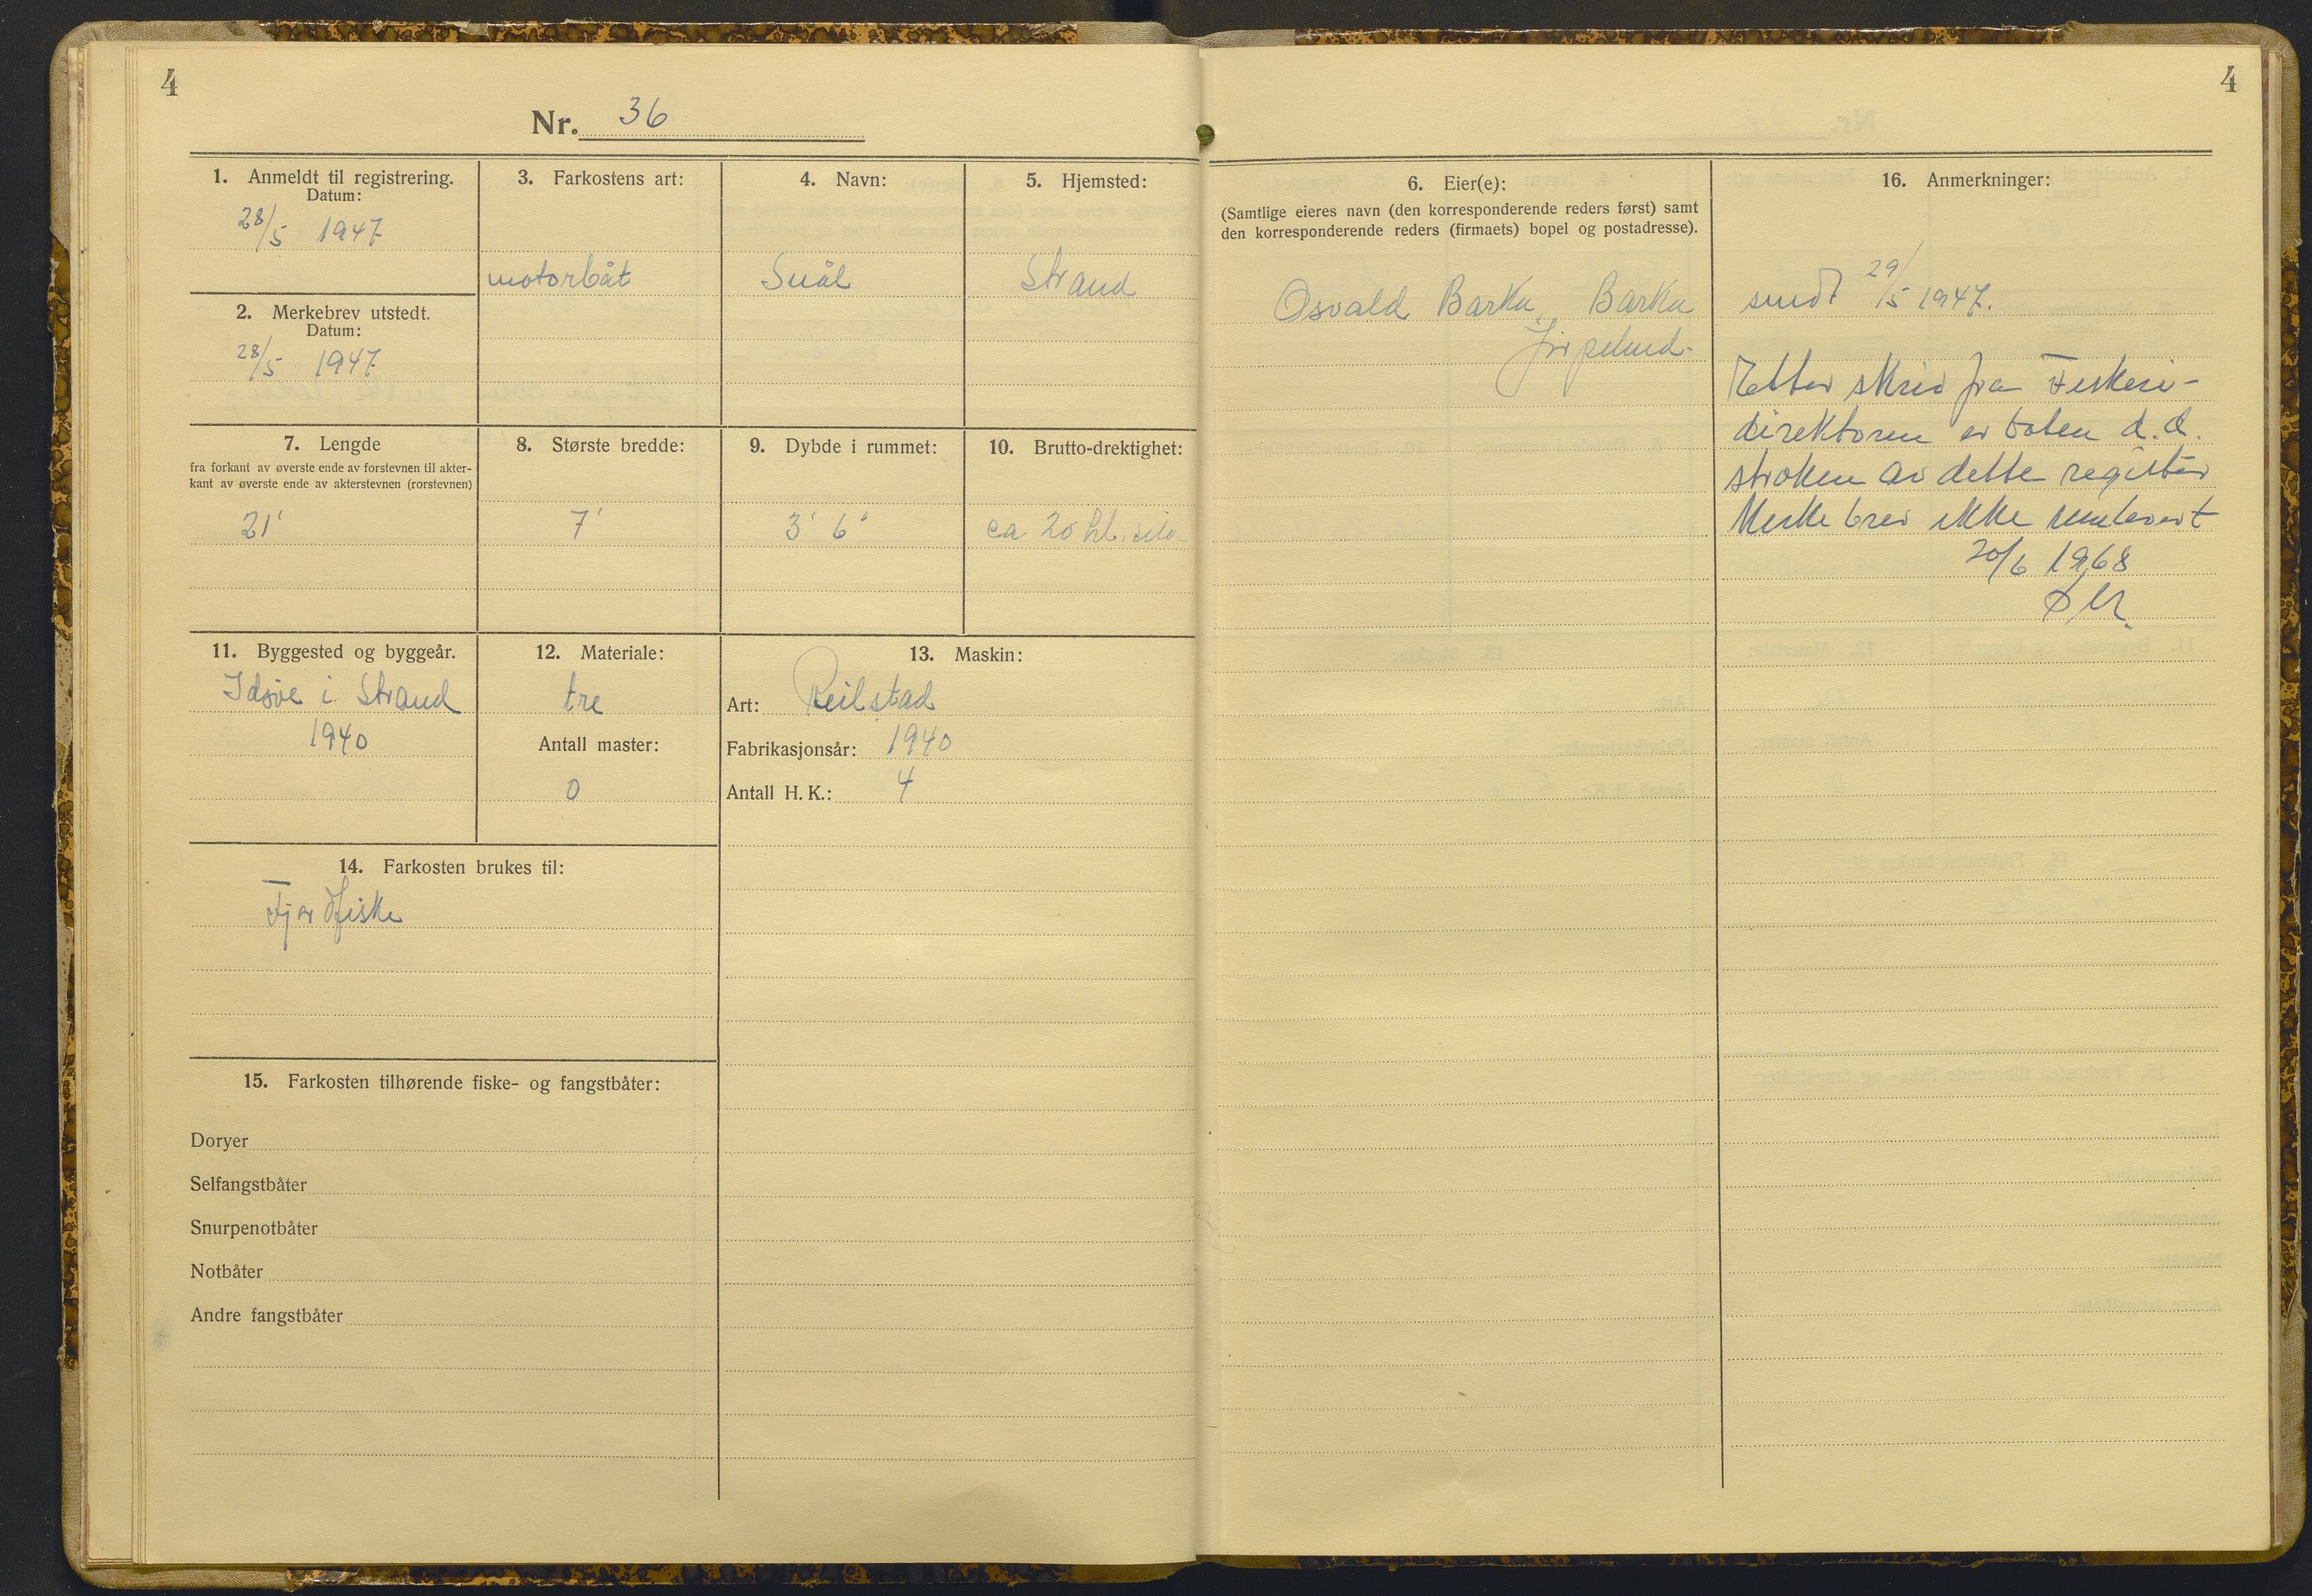 4
Nr. 36
1. Anmeldt til registrering.
Datum:
28/5 1947
2. Merkebrev utstedt.
Datum:
28/5 1947
3. Farkostens art:
motorbåt
4. Navn:
5. Hjemsted:
Strand
7. Lengde
fra forkant av øverste ende av forstevnen til akter-
kant av øverste ende av akterstevnen (rorstevnen)
21'
8. Største bredde:
7'
9. Dybde i rummet:
3' 6"
10. Brutto-drektighet:
ca 20 hl.
11. Byggested og byggeår.
Idsøe i Strand
1940
12. Materiale:
tre
Antall master:
0
13. Maskin:
Art: Reilstad
Fabrikasjonsår: 1940
Antall H. K.: 4
14. Farkosten brukes til:
Fjordfiske
15. Farkosten tilhørende fiske- og fangstbåter:
Doryer
Selfangstbåter
Snurpenotbåter
Notbåter
Andre fangstbåter
4
6. Eier(e):
(Samtlige eieres navn (den korresponderende reders først) samt
den korresponderende reders (firmaets) bopel og postadresse).
Osvald Barka, Barka
Jørpelund.
16. Anmerkninger:
sendt 29/5 1947.
Etter skriv fra Fiskeri-
direktoren er båten d.d.
stroken av dette register
Merkebrev ikke innlevert
20/6 1968